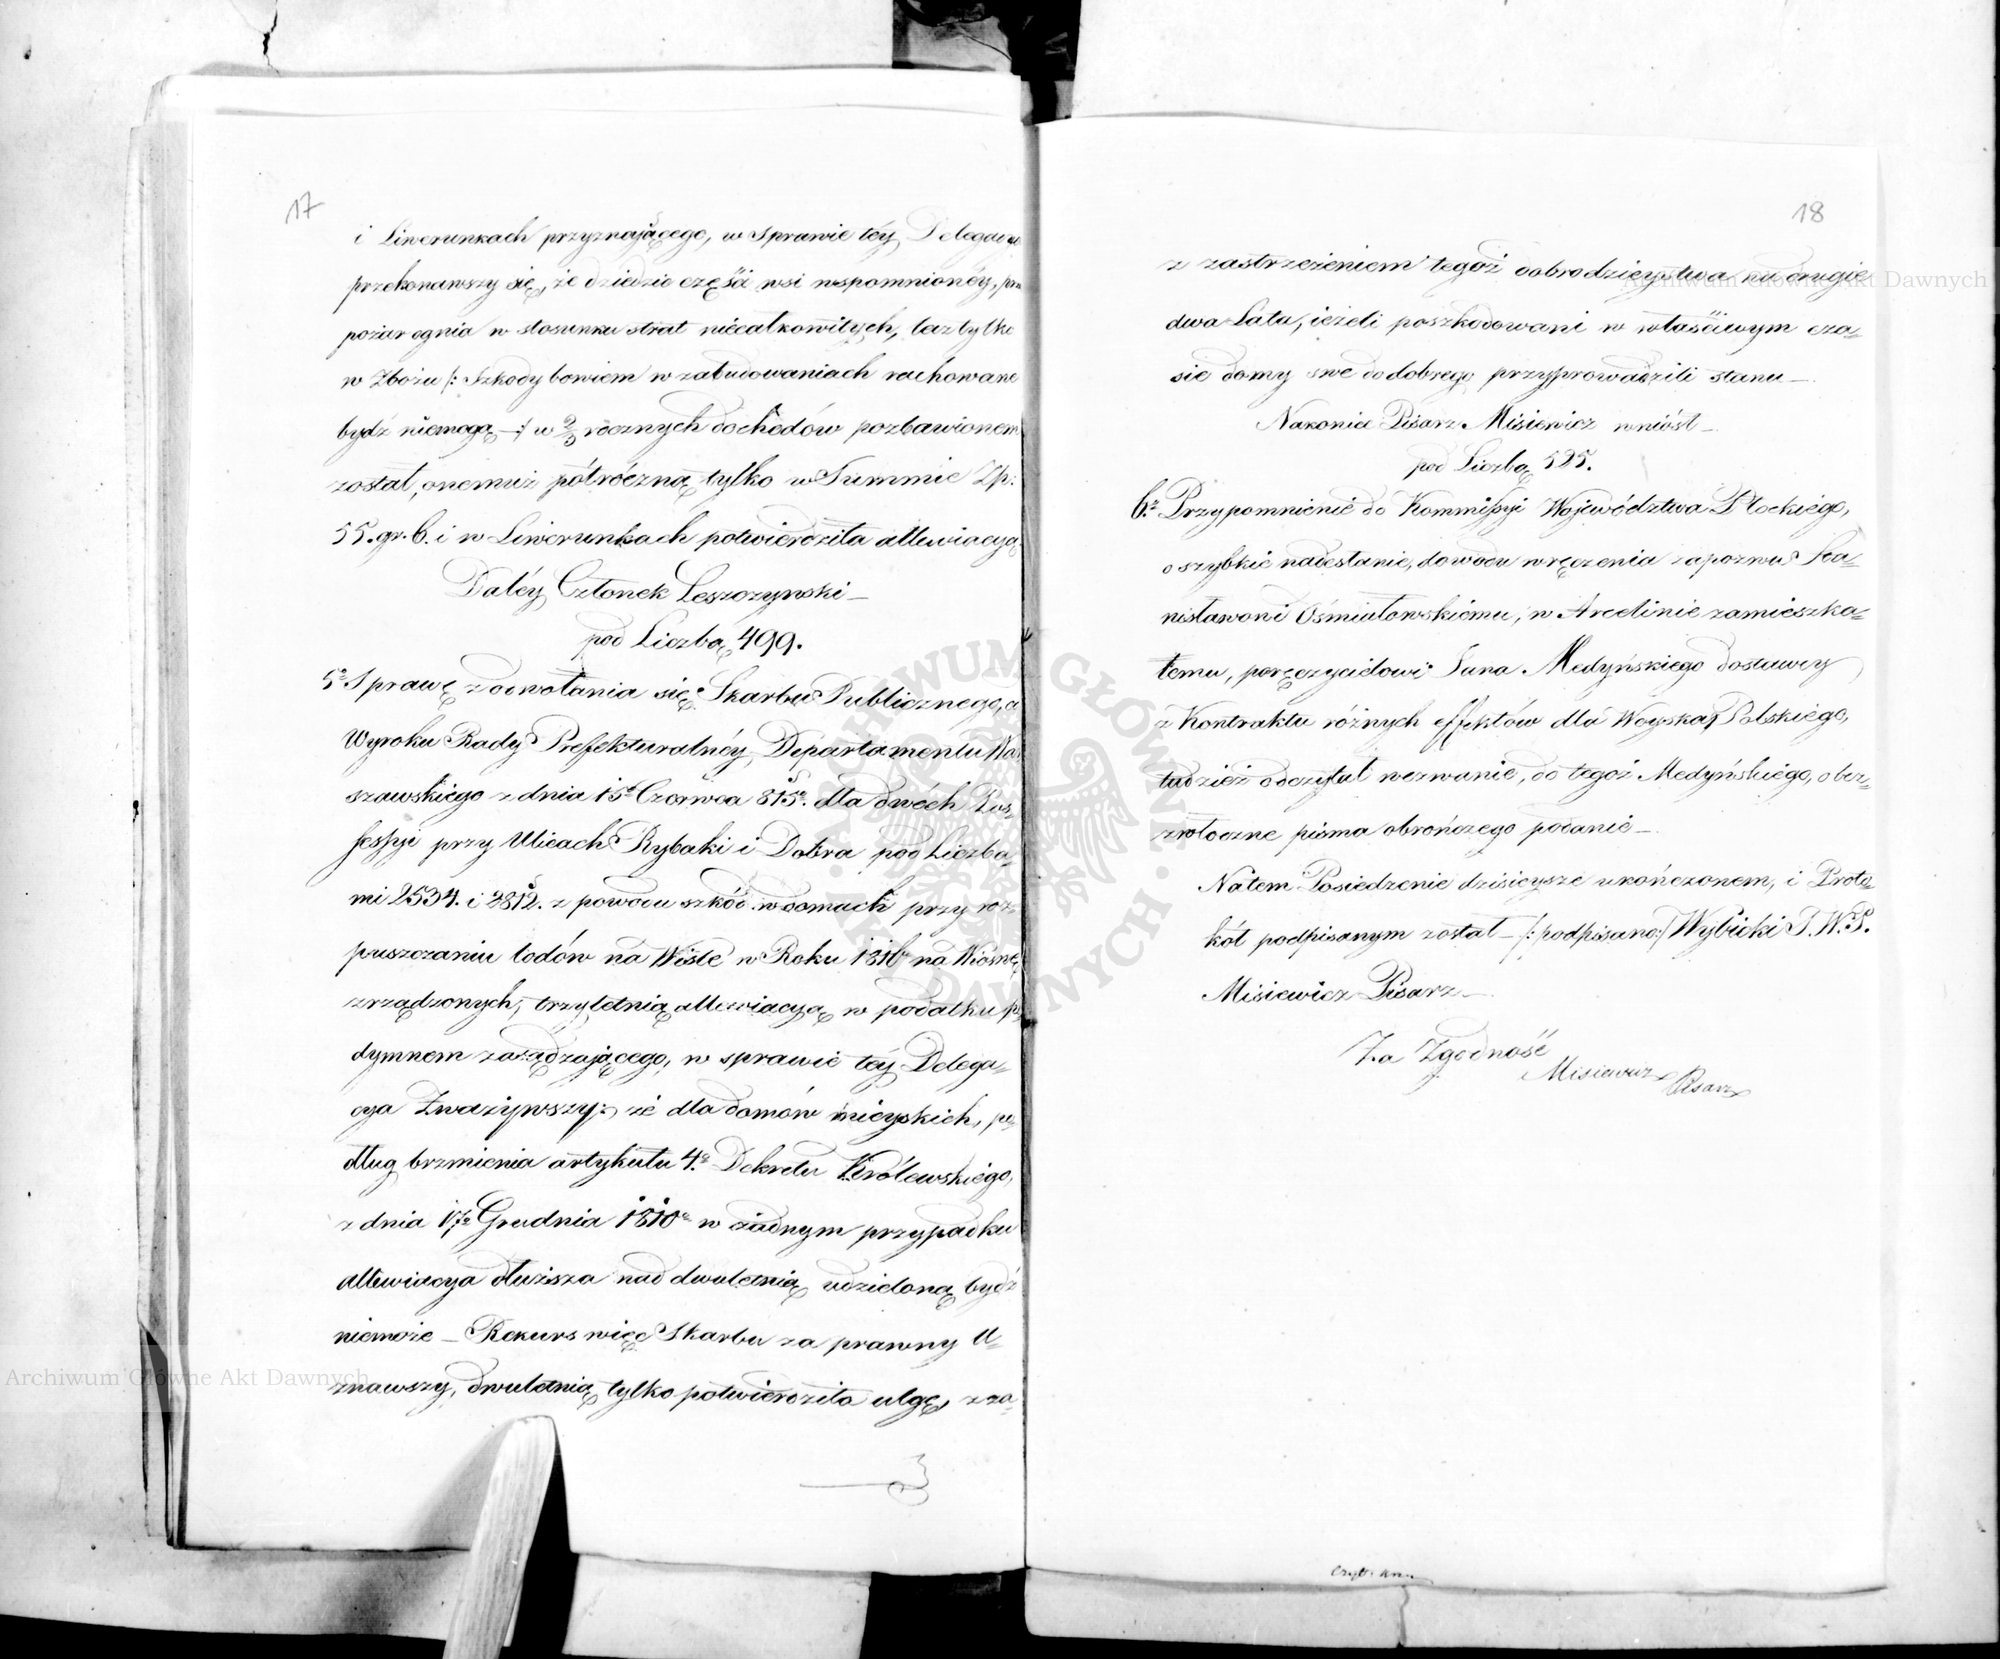 17
i Liwerunkach przyznającego, w sprawie téy Delegacya
przekonawszy się, że dziedzic części wsi wspomnionéy, prz
pożar ognia w stosunku strat niecałkowitych, lecz tylko
w Zbożu /: Szkody bowiem w zabudowaniach rachowane
bydź niemogą :/ w 2/3 rocznych dochodów pozbawionem
został, onemuż półróczną tylko w Summie Zp:
55. gr. 6. i w Liwerunkach potwierdziła allewiacyą
Daléy Członek Leszczynski
pod Liczbą 499.
5º Sprawę z odwołania się Skarbu Publicznego, od
Wyroku Rady Prefekturalnéy Departamentu War
szawskiego z dnia 15º Czerwca 815º. dla dwóch Pos=
sessyi przy Ulicach Rybaki i Dobra pod Liczba=
mi 2534. i 2812. z powodu szkód w domach przy roz=
puszczaniu lodów na Wiśle w Roku 181 na Wiosnę
zrządzonych, trzyletnią allewiacyą w podatku po
dymnem zasądzającego, w sprawie téy Delega=
cya Zważywszy: że dla domów mieyskich, po=
dług brzmienia artykułu 4º Dekretu Królewskiego,
z dnia 17º Grudnia 1810º w żadnym przypadku
allewiacya dłuższa nad dwuletnią udzieloną bydź
niemoże _ Rekurs więc Skarbu za prawny U=
znawszy, dwuletnią tylko potwierdziła ulgę, z za=
18
z zastrzeżeniem tegoż dobrodzieystwa na drugie
dwa Lata, ieżeli poszkodowani w właściwym cza=
sie domy swe do dobrego przyprowadzili stanu _
Nakoniec Pisarz Misiewicz wniósł _
pod Liczbą 525.
6º Przypomnienie do Kommissyi Województwa Płockiego,
o szybkie nadesłanie, dowodu wręczenia zapozwu Sta=
nisławowi Ośmiałowskiemu, w Arcelinie zamieszka=
łemu, poręczycielowi Jana Medyńskiego dostawcy
z Kontraktu różnych effektów dla Woyska Polskiego,
tudzież odczytał wezwanie, do tegoż Medyńskiego, o bez=
zwłoczne pisma obrończego podanie _
Natem Posiedzenie dzisieysze ukończonem, i Proto=
kół podpisanym został _ /: podpisano :/ Wybicki P. W. P.
Misiewicz Pisarz _
Za Zgodność
Misiewicz Pisarz
Archiwum Główne Akt Dawnych
Archiwum Główne Akt Dawnych
ARCHIWUM GŁÓWNE AKT DAWNYCH